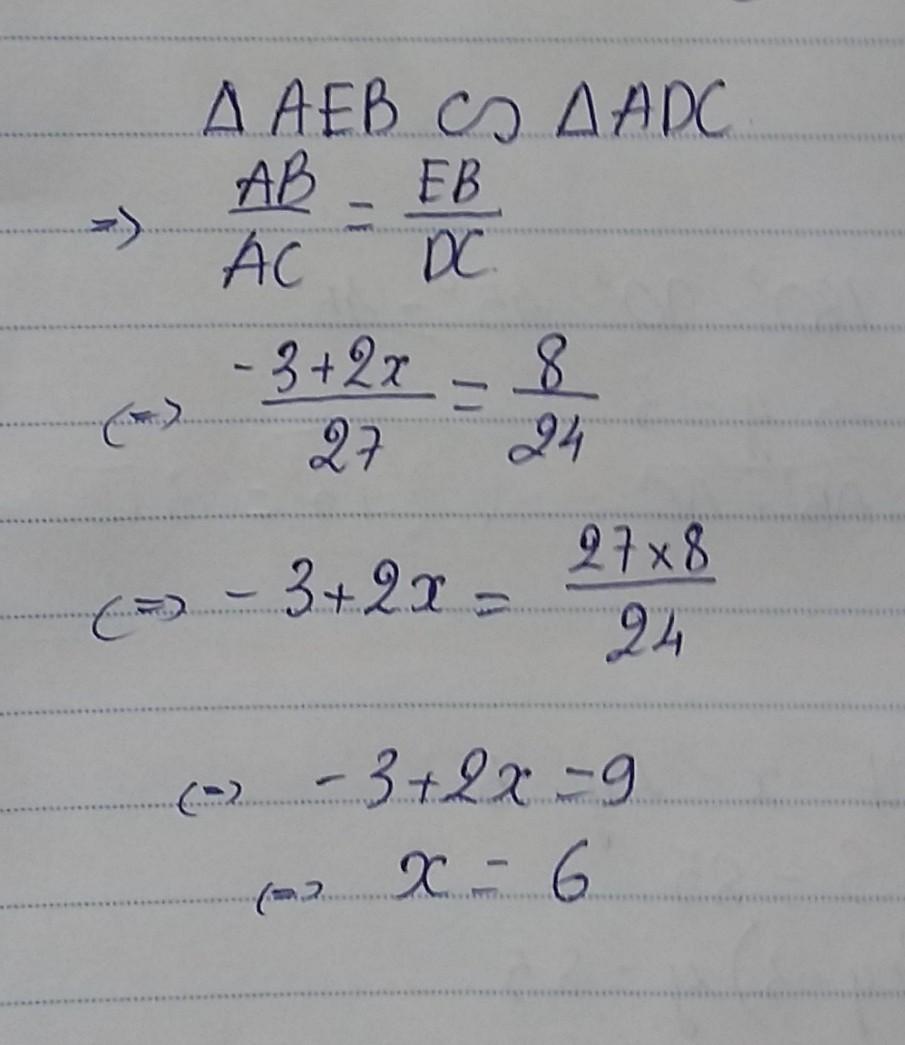 Δ AEB ∽ Δ ADC
=> AB/AC = EB/DC
<=> -3+2x/27 = 8/24
<=> -3+2x = 27×8/24
<=> -3+2x = 9
<=> x = 6